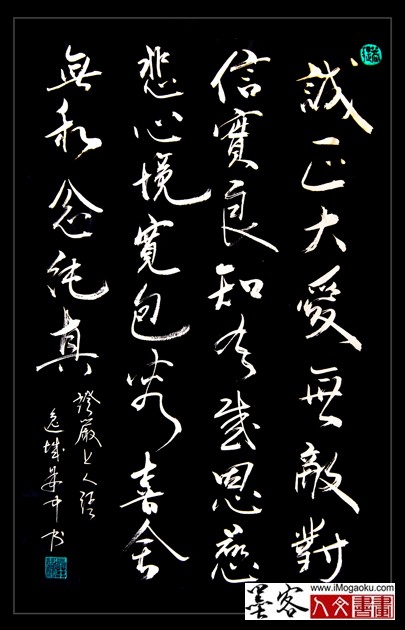 誠正大愛無敵對
信實良知有感恩慈
悲心境寬包容喜舍
無私念純真
證嚴上人語
逸城
书
墨客
www.iMogaoku.com
人文書畫